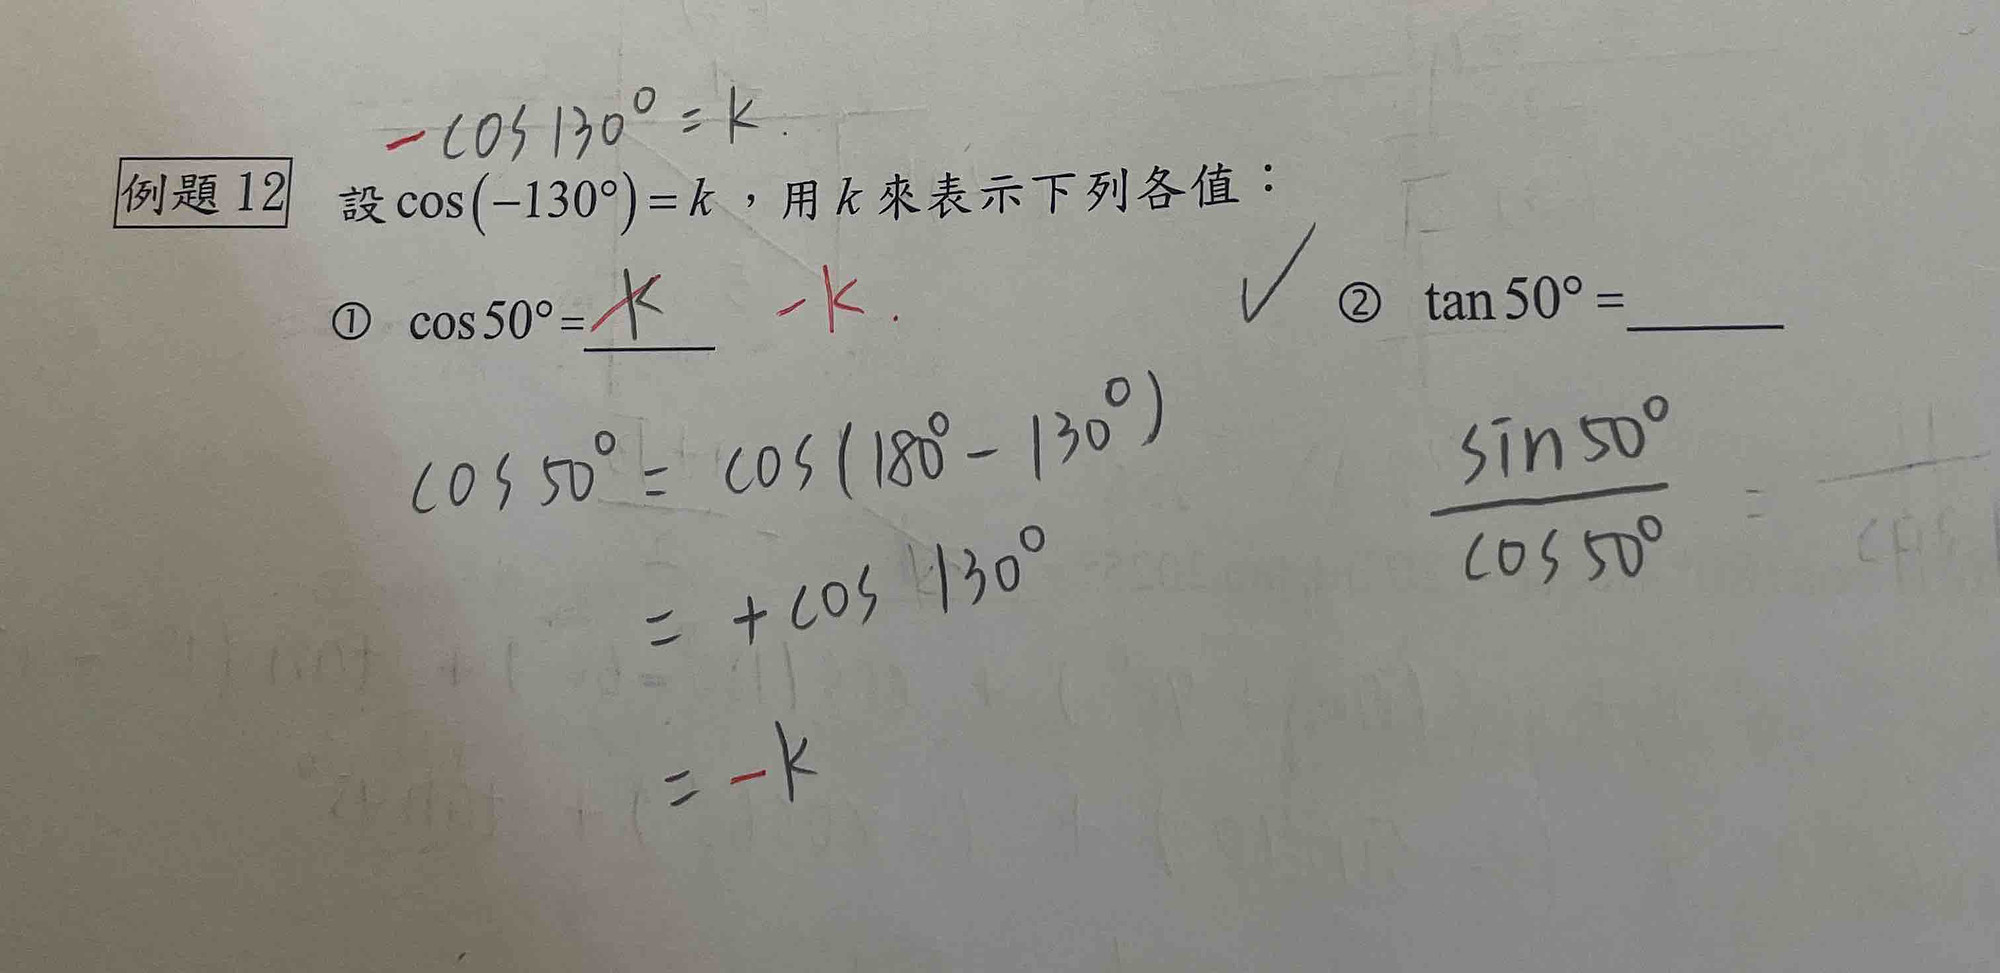 -cos130°=k.
例題 12 設cos(−130°)=k，用k來表示下列各值：
① cos50°=k -k. ✓ ② tan50°=
cos50°= cos(180°-130°)
= +cos 130°
= -k
sin50°
cos50° =